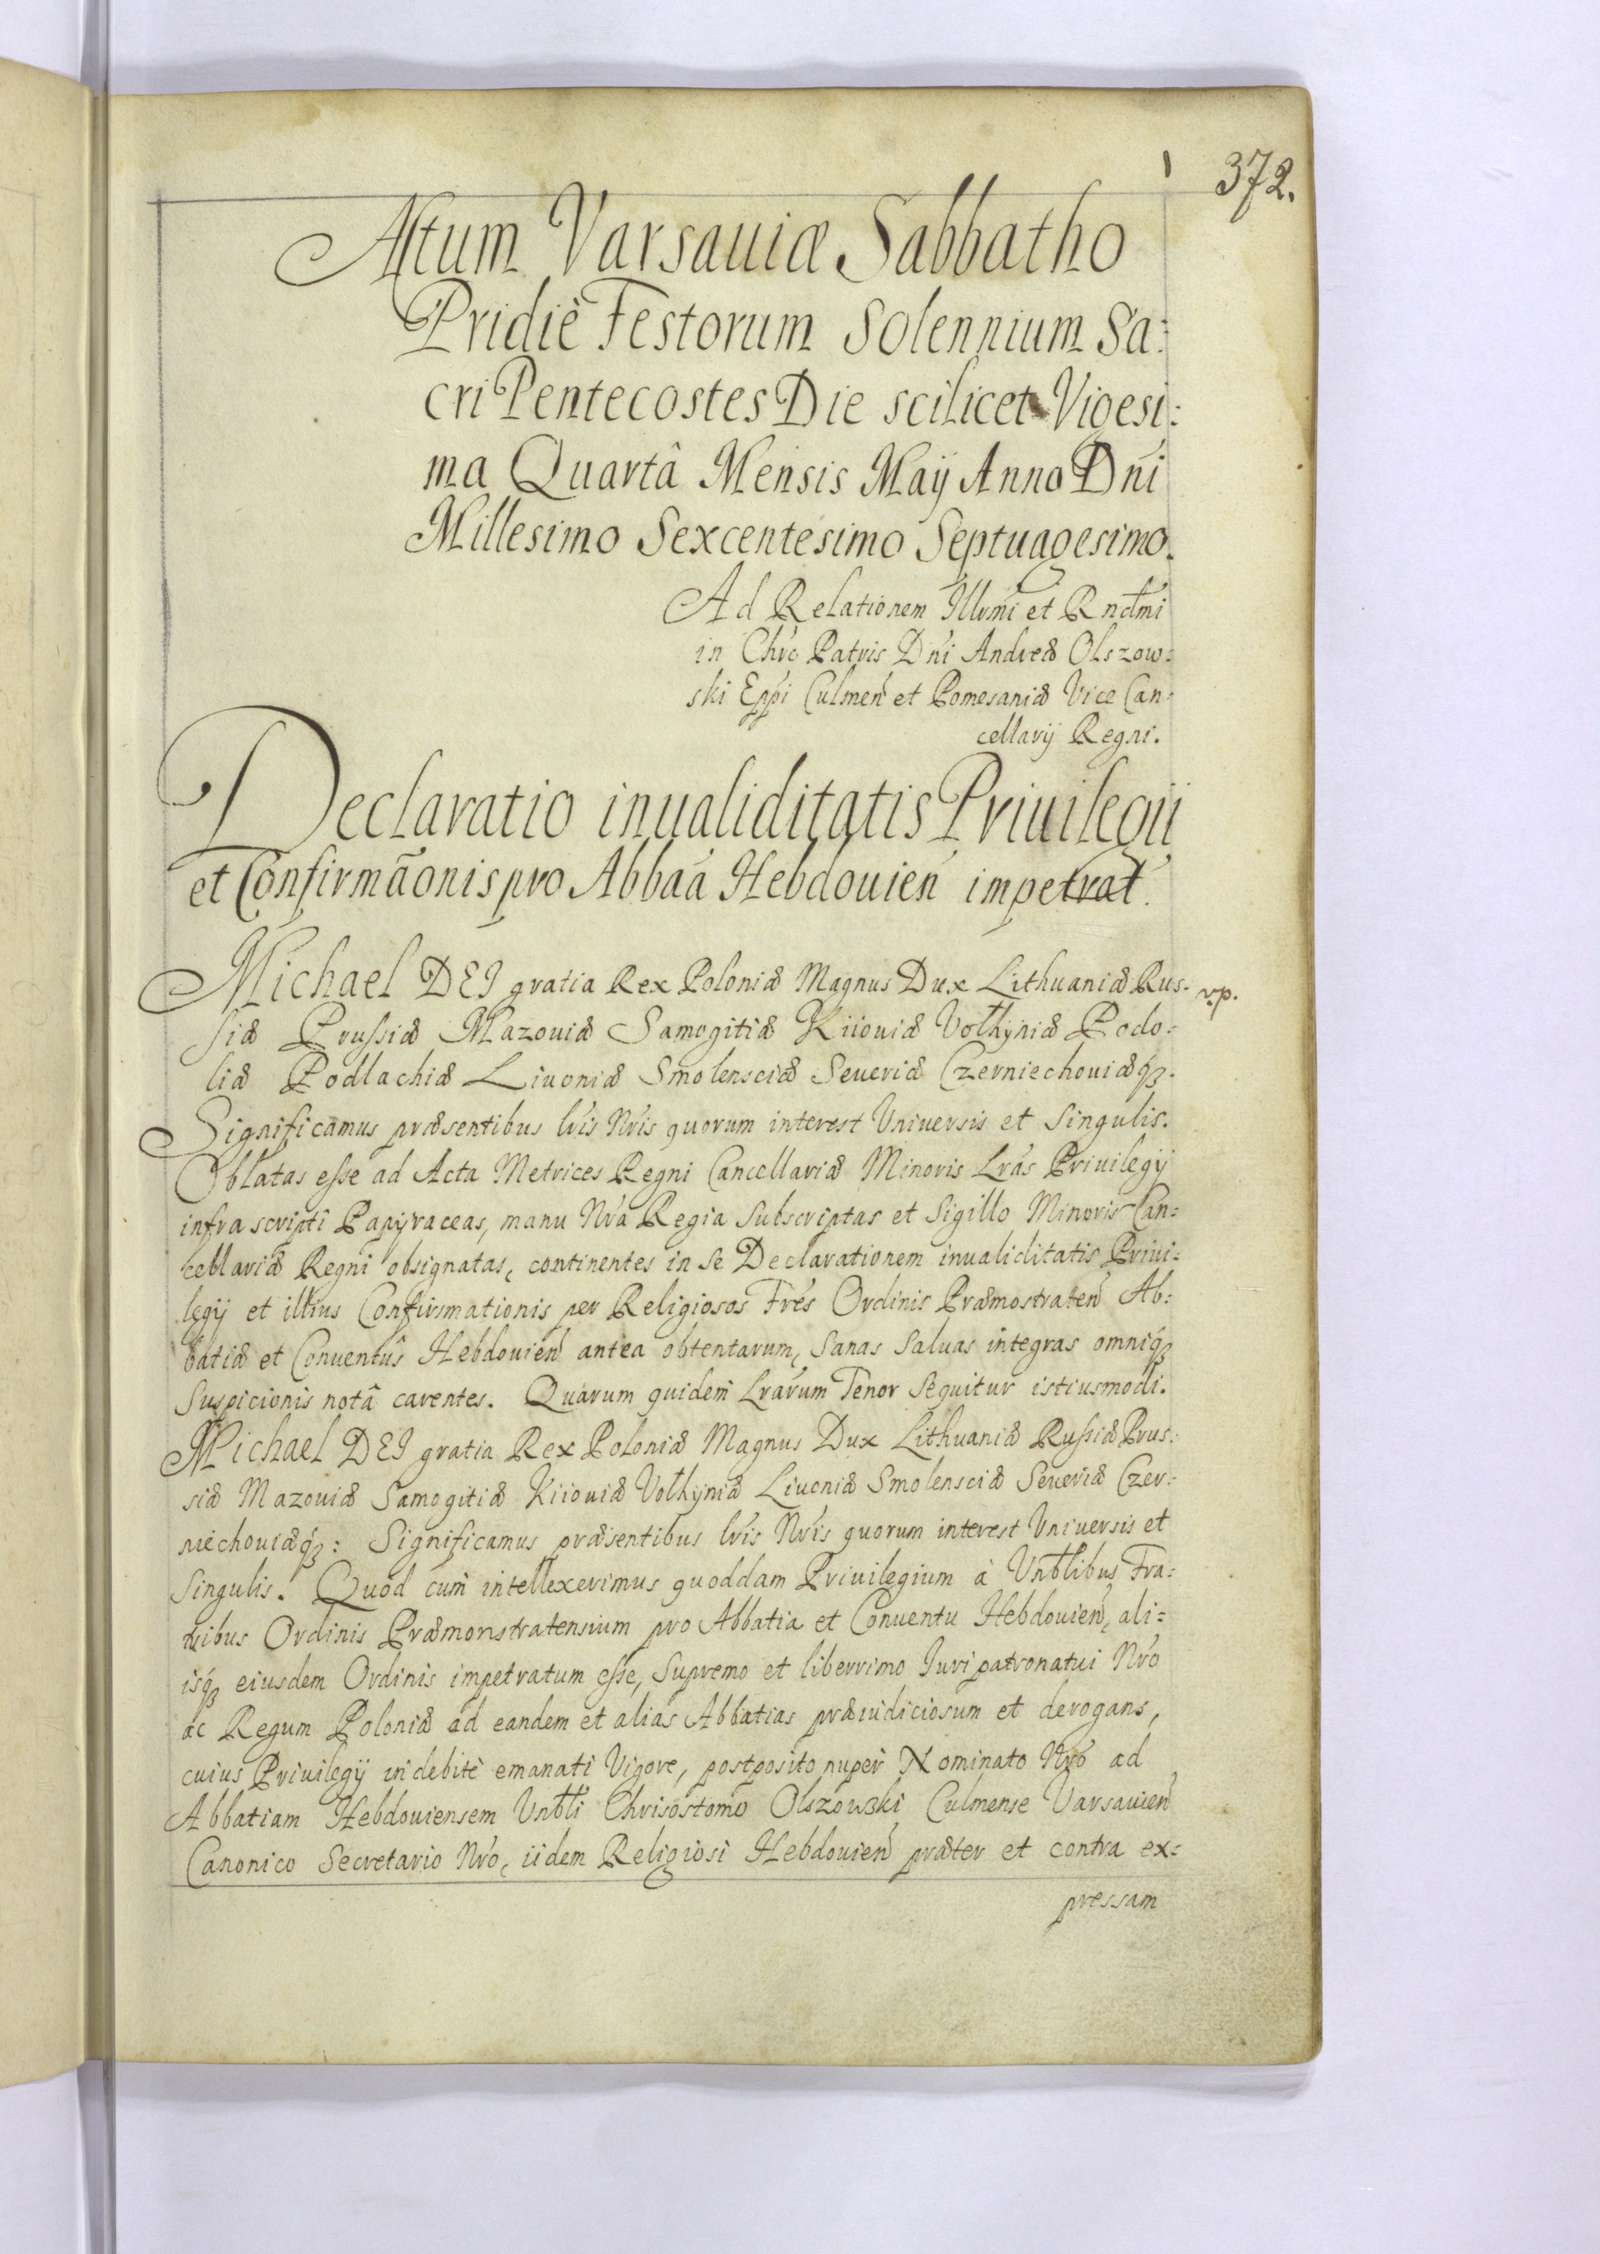 372.
Actum Varsauiæ Sabbatho
Pridiè Festorum Solennium Sa:
cri Pentecostes Die scilicet Vigesi:
ma Quartâ Mensis Maÿ Anno Dni
Millesimo Sexcentesimo Septuagesimo.
Ad Relationem Illmi et Rndmi
in Chro Patris Dni Andreæ Olszow:
ski Eppi Culmen et Pomesaniæ Vice Can:
cellarÿ Regni.
Declaratio inualiditatis Priuilegii
et Confirmãonis pro Abbaa Hebdouien impetrat.
Michael DEI gratia Rex Poloniæ Magnus Dux Lithuaniæ Rus: v.p.
siæ Prussiæ Mazouiæ Samogitiæ Kiiouiæ Volhyniæ Podo:
liæ Podlachiæ Liuoniæ Smolensciæ Seueriæ Czerniechouiæq3.
Significamus præsentibus lris Nris quorum interest Vniuersis et Singulis.
Oblatas esse ad Acta Metrices Regni Cancellariæ Minoris Lras Priuilegÿ
infra scripti Papÿraceas, manu Nra Regia Subscriptas et Sigillo Minoris Can:
cellariæ Regni obsignatas, continentes in se Declarationem inualiditatis Priui:
legÿ et illius Confirmationis per Religiosos Fres Ordinis Præmostraten Ab:
batiæ et Conuentûs Hebdouien antea obtentarum, Sanas Saluas integras omniq3
Suspicionis notâ carentes. Quarum quidem Lrarum Tenor Sequitur istiusmodi.
Michael DEI gratia Rex Poloniæ Magnus Dux Lithuaniæ Russiæ Prus:
siæ Mazouiæ Samogitiæ Kiiouiæ Volhyniæ Liuoniæ Smolensciæ Seueriæ Czer:
niechouiæq3: Significamus præsentibus lris Nris quorum interest Vniuersis et
Singulis. Quod cum intellexerimus quoddam Priuilegium à Vnblibus Fra:
tribus Ordinis Præmonstratensium pro Abbatia et Conuentu Hebdouien, ali:
isq3 eiusdem Ordinis impetratum esse, Supremo et liberrimo Iuripatronatui Nro
ac Regum Poloniæ ad eandem et alias Abbatias præiudiciosum et derogans,
cuius Priuilegÿ indebitè emanati Vigore, postposito nuper Nominato Nro ad
Abbatiam Hebdouiensem Vnbli Chrisostomo Olszowski Culmense Varsauien
Canonico Secretario Nro, iidem Religiosi Hebdouien præter et contra ex:
pressam